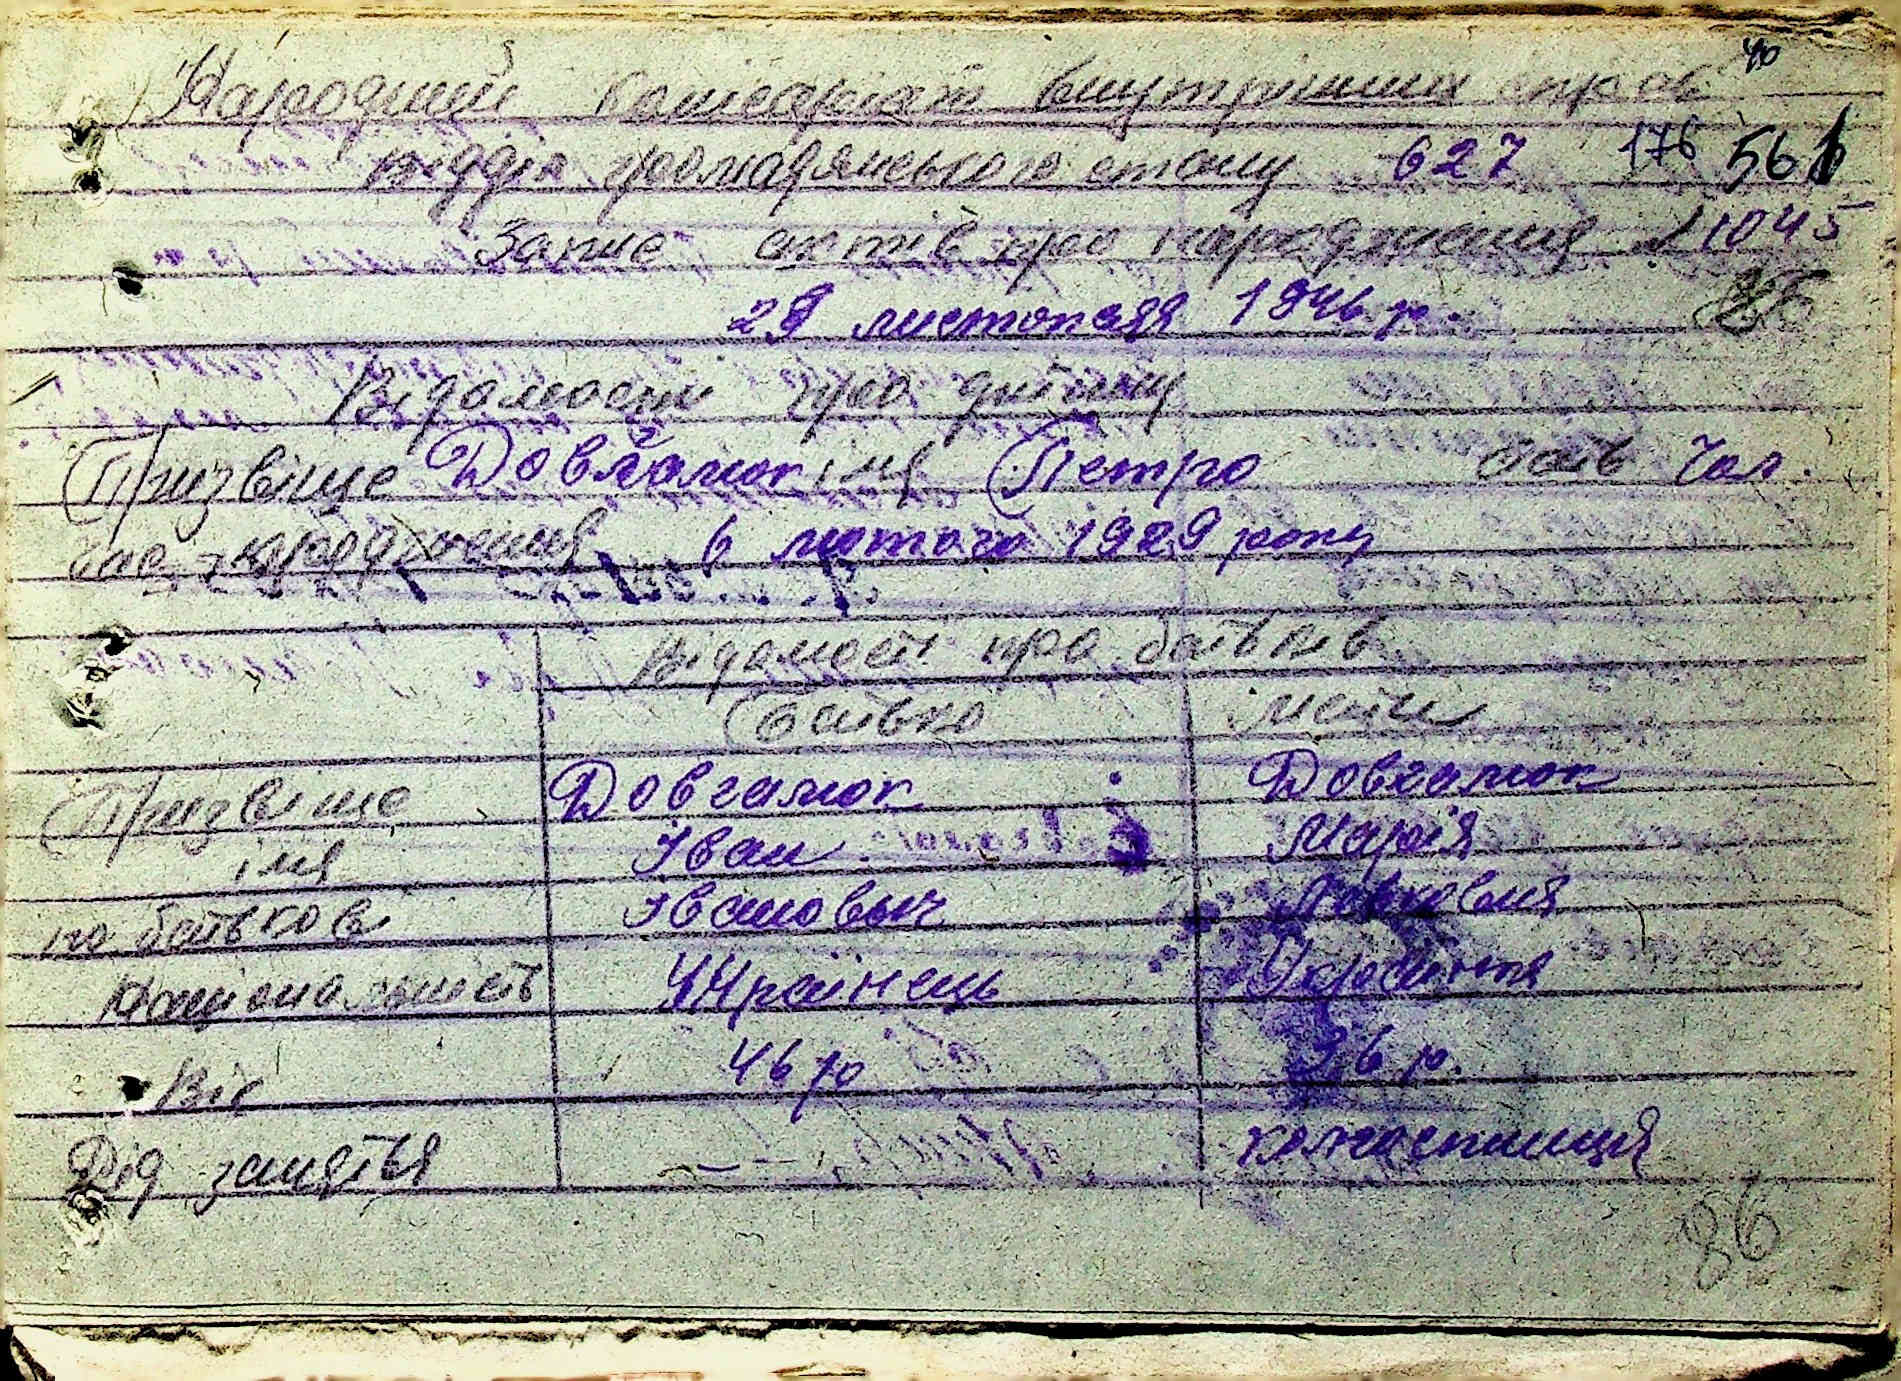 40
Народний комісаріат внутрішних справ
Відділ громадянського стану 627 176 561
Запис актів про народження 1045
29 листопада 1946 р.
Відомости про дитину
Призвіще Довгалюк імя Петро стать Чол.
час народження 6 лютого 1929 року
Відомості про батьків
Батько мати
Призвіще Довгалюк Довгалюк
імя Іван Марія
по батькові Івановыч
Національність Українець Українка
Вік 46 р 36 р.
Рід заняття — — колгоспниця
86